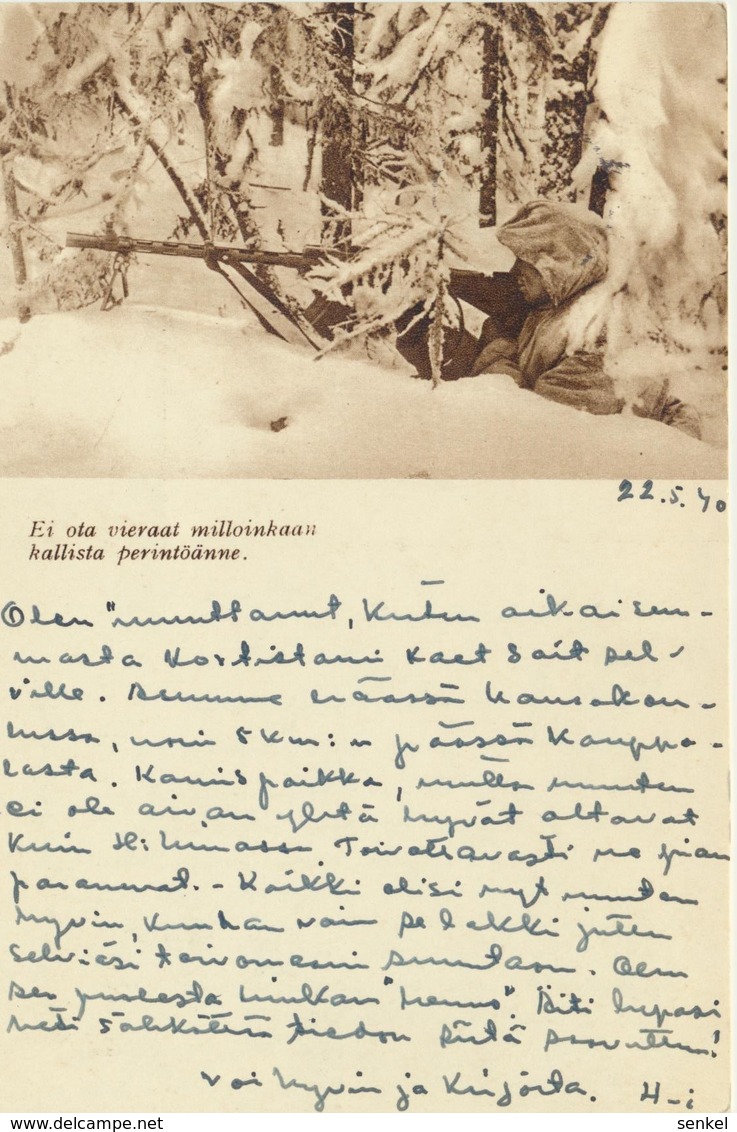 22.5.40
Ei ota vieraat milloinkaan
kallista perintöänne.
Olen "muuttanut, kuten aikaisem-
masta kortistani kaet sait sel-
ville. Asumme eräässä kansakou-
lussa, noin 5 km:n päässä kauppa-
lasta. Kaunis paikka, mutta muuten
ei ole aivan yhtä hyvät oltavat
kuin Toivottavasti ne pian
paranevat. - Kaikki olisi nyt muuten
hyvin, kunhan vain se juttu
selviäsi toivomaani suuntaan. Olen
sen puolesta hiukan "hermo". lupasi
heti sähköttää tiedon siitä saavuttua!
Voi hyvin ja kirjoita. H-i
senkel